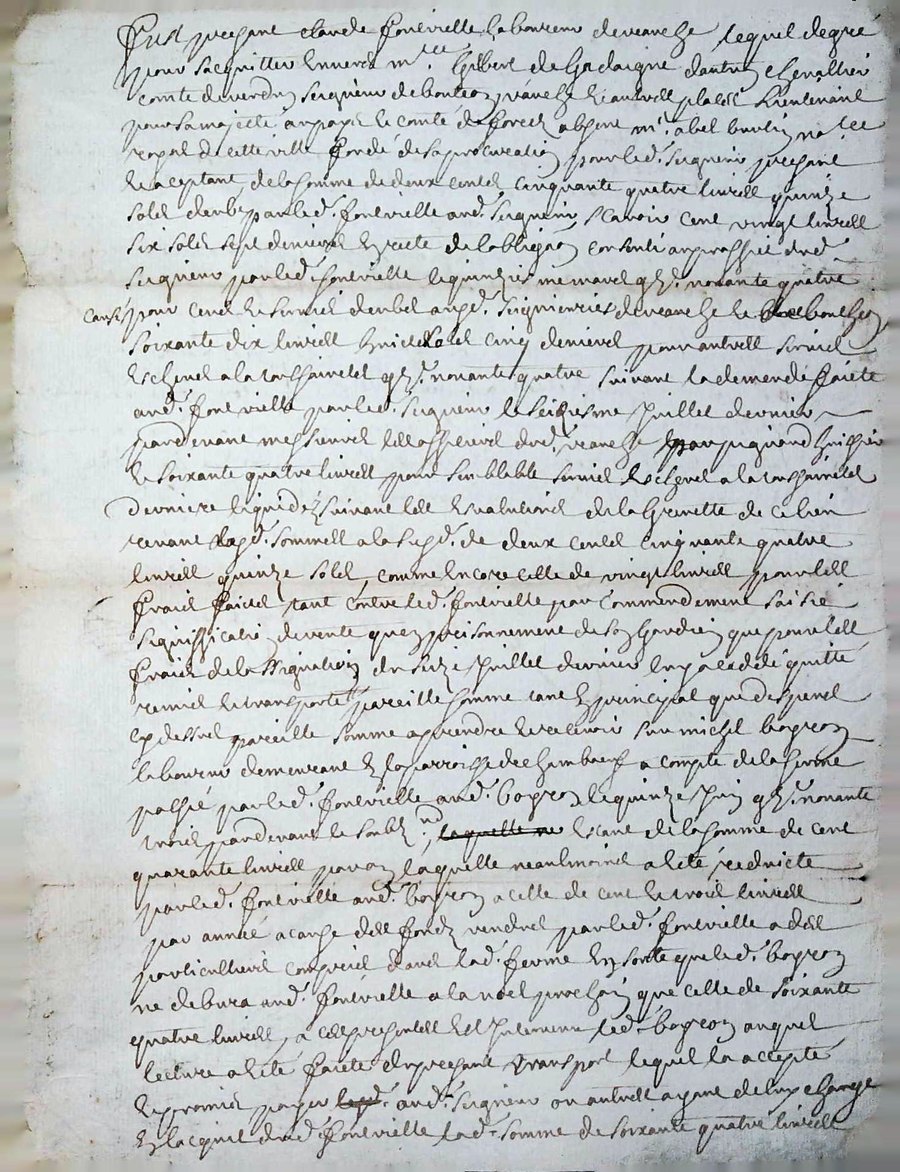 Fust present claude fontvielle laboureur de veauche lequel de gré
pour sacquitter envers mre. Gilbert de Gadaigne chevallier
comte de verdun seigneur de bouteon, veauche et autres places Lieutenant
pour sa majesté au pays et comté de forest absent mr. abel
royal de cette ville fondé de sa procuration pour led. seigneur present
et aceptant, de la somme de deux centz cinquante quatre livres quinze
solz deube par led. fontvielle aud. seigneur scavoir cent vingt livres
six solz sept deniers de reste de lobligaon. consanti au proffict dud.
seigneur par led. fontvielle le quinziesme mars nonante quatre
causé pour cens et servis deubz aud. seigneuries de veauche et boutheon
soixante dix livres huict solz cinq deniers pour autres servis
escheus a la toussainctz nonante quatre suivant la demende faicte
aud. fontvielle par led. seigneur le seiziesme Juillet dernier
pardevant messieurs les officiers dud. veauche par huissier
et soixante quatre livres pour semblable servis escheus a la toussainctz
derniere liquidez suivant les evaluaions de la Grenette de ce lieu
revenant lesd. sommes a la susd. de deux centz cinquante quatre
livres quinze solz, comme encore celle de vingt livres pour les
fraiz faictz tant contre led. fontvielle par commendement saisie
significatio de vente que prisonnement de son Gardien que pour les
fraiz de lassignation du seize Juillet dernier luy a cedé quitté
remis et transporté pareille somme tant en principal que despens
cy dessus pareille somme a prendre et recevoir sur michel boyron
laboureur demeurant en la parroisse de chambœuf a compte de la ferme
passé par led. fontvielle aud. boyron le quinze Juin nonante
trois pardevant le soubz.né, laquelle ne estant de la somme de cent
quarante livres par an laquelle neaulmoins a lété reduicte
par led. fontvielle aud. boyron a celle de cent et trois livres
par année a cause des fondz vendus par led. fontvielle a des
particulliers compris dans lad. ferme en sorte que led. boyron
ne debvra aud. fontvielle a la noel prochain que celle de soixante
quatre livres, a ces presentes est Intervenu led. boyron auquel
lecture a lété faicte du present transport lequel la accepté
et promis payer aud. seigneur ou autres ayant de luy charge
en lacquit dud. fontvielle lad. somme de soixante quatre livres